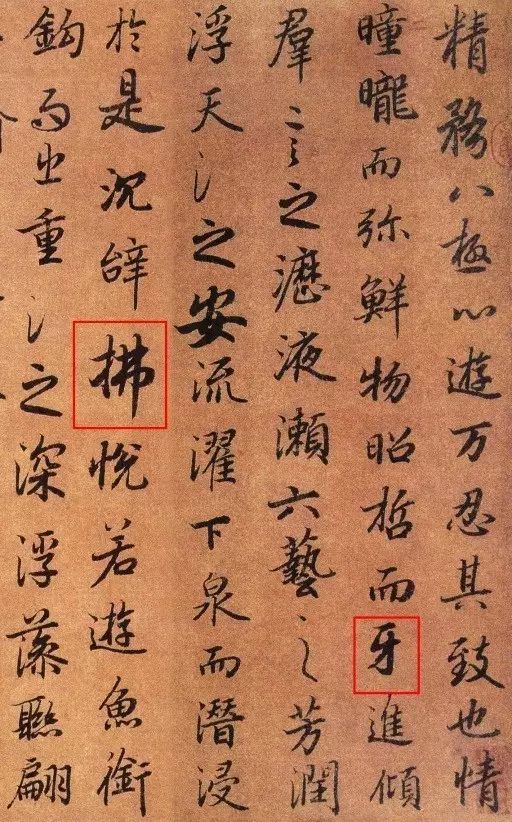 精務八極心遊万忍其致也情
曈曨而弥鮮物昭晢而牙進傾
羣言之瀝液漱六藝之芳潤
浮天淵之安流濯下泉而潛浸
於是沉辭拂悅若遊魚銜
鈎而出重淵之深浮藻聯翩